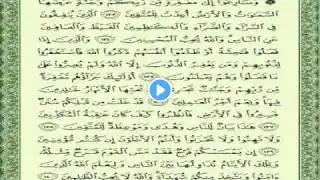 وَسَارِعُوا إِلَىٰ مَغْفِرَةٍ مِنْ رَبِّكُمْ وَجَنَّةٍ عَرْضُهَا
السَّمَوَاتُ وَالْأَرْضُ أُعِدَّتْ لِلْمُتَّقِينَ ١٣٣ الَّذِينَ يُنْفِقُونَ
فِي السَّرَّاءِ وَالضَّرَّاءِ وَالْكَاظِمِينَ الْغَيْظَ وَالْعَافِينَ
عَنِ النَّاسِ وَاللَّهُ يُحِبُّ الْمُحْسِنِينَ ١٣٤ وَالَّذِينَ إِذَا
فَعَلُوا فَاحِشَةً أَوْ ظَلَمُوا أَنْفُسَهُمْ ذَكَرُوا اللَّهَ فَاسْتَغْفَرُوا
لِذُنُوبِهِمْ وَمَنْ يَغْفِرُ الذُّنُوبَ
فَعَلُوا وَهُمْ يَعْلَمُونَ ١٣٥ أُولَٰئِكَ جَزَاؤُهُمْ مَغْفِرَةٌ
مِنْ رَبِّهِمْ وَجَنَّاتٌ تَجْرِي تَحْتِهَا الْأَنْهَارُ خَالِدِينَ
فِيهَا وَنِعْمَ أَجْرُ الْعَامِلِينَ ١٣٦ قَدْ خَلَتْ مِنْ قَبْلِكُمْ سُنَنٌ
فَسِيرُوا فِي الْأَرْضِ فَانْظُرُوا كَيْفَ كَانَ عَاقِبَةُ الْمُكَذِّبِينَ
١٣٧ هَٰذَا بَيَانٌ لِلنَّاسِ وَهُدًى وَمَوْعِظَةٌ لِلْمُتَّقِينَ ١٣٨
وَلَا تَهِنُوا وَلَا تَحْزَنُوا وَأَنْتُمُ الْأَعْلَوْنَ إِنْ كُنْتُمْ مُؤْمِنِينَ
١٣٩ إِنْ يَمْسَسْكُمْ قَرْحٌ فَقَدْ مَسَّ الْقَوْمَ قَرْحٌ مِثْلُهُ
وَتِلْكَ الْأَيَّامُ نُدَاوِلُهَا بَيْنَ النَّاسِ وَلِيَعْلَمَ اللَّهُ الَّذِينَ